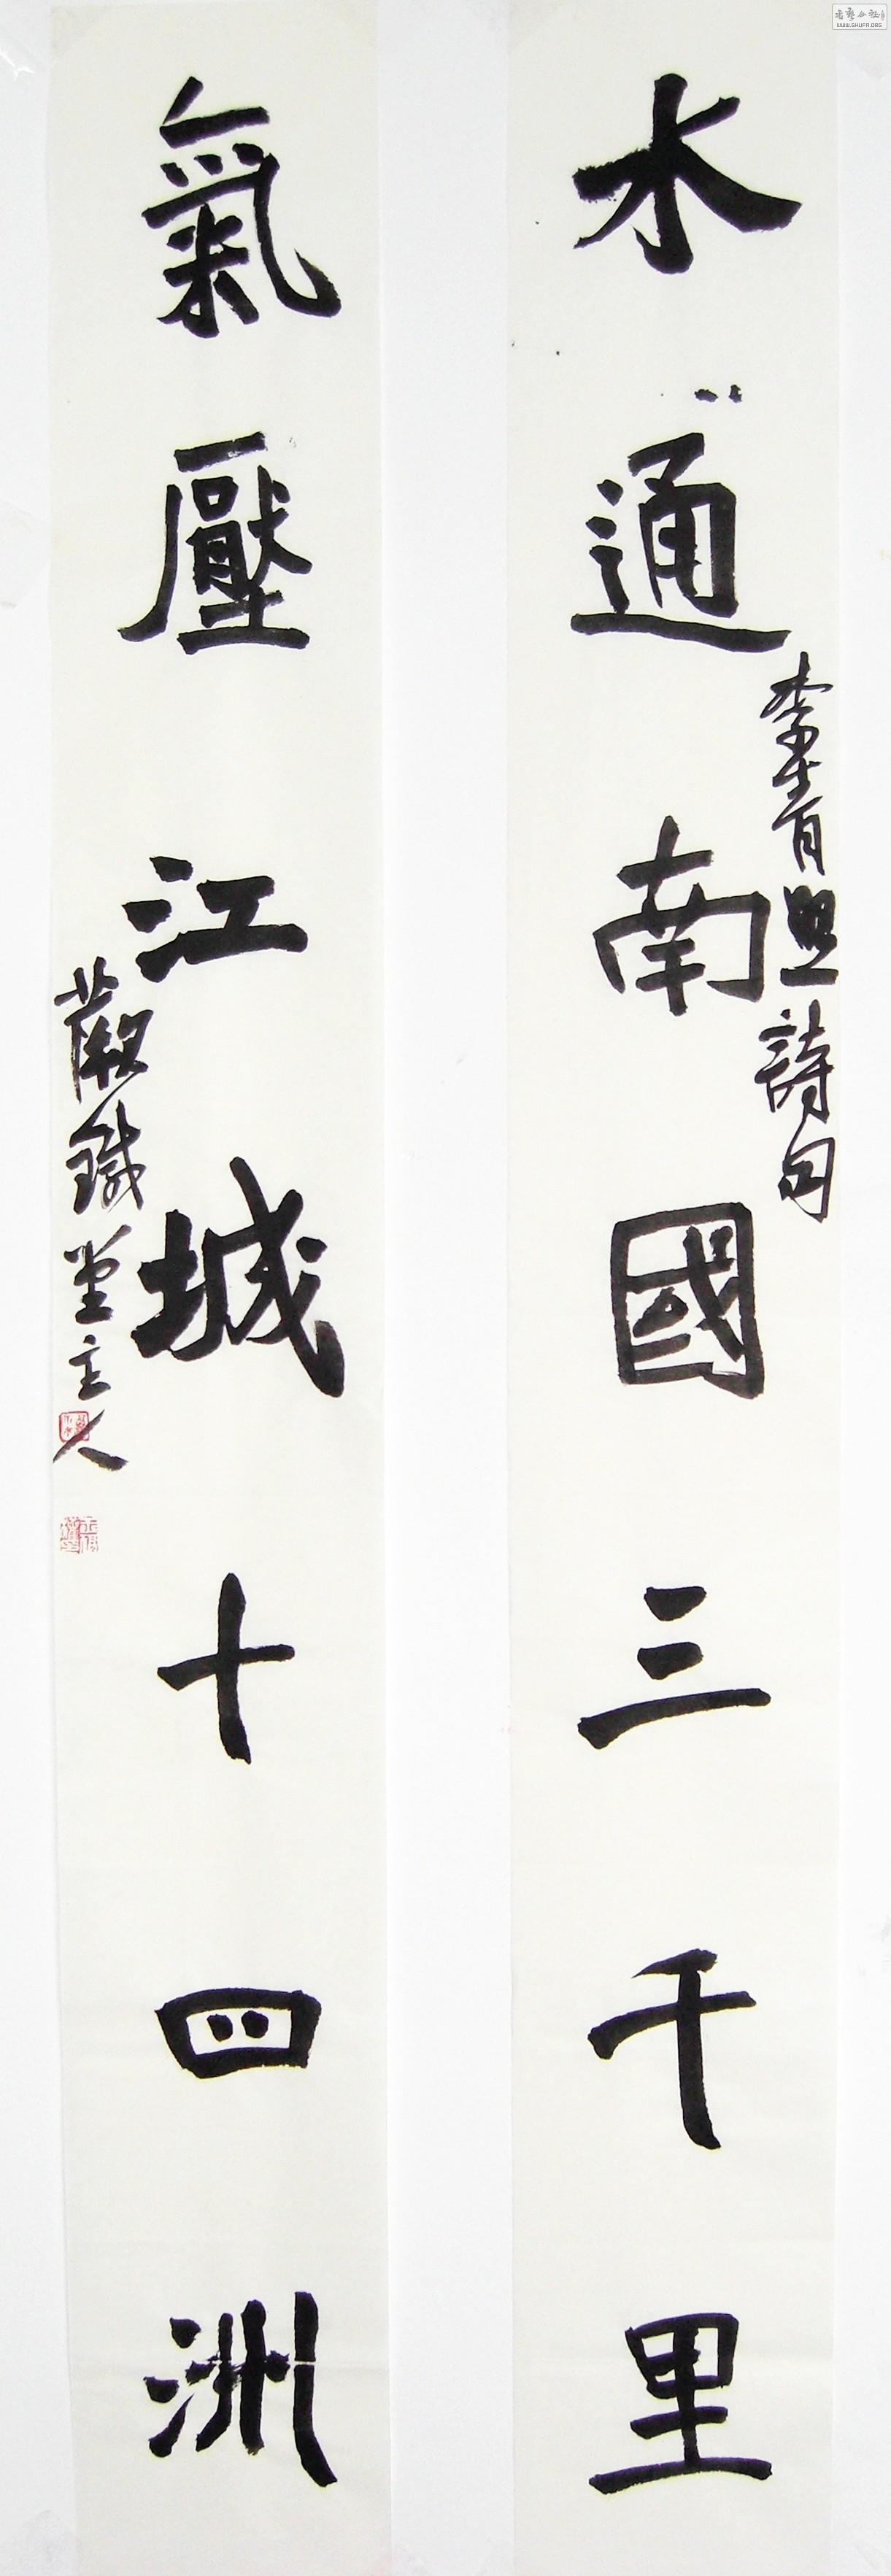 水通南國三千里
李清照詩句
氣壓江城十四洲
蕨鐵堂主人
WWW.SHUFA.ORG